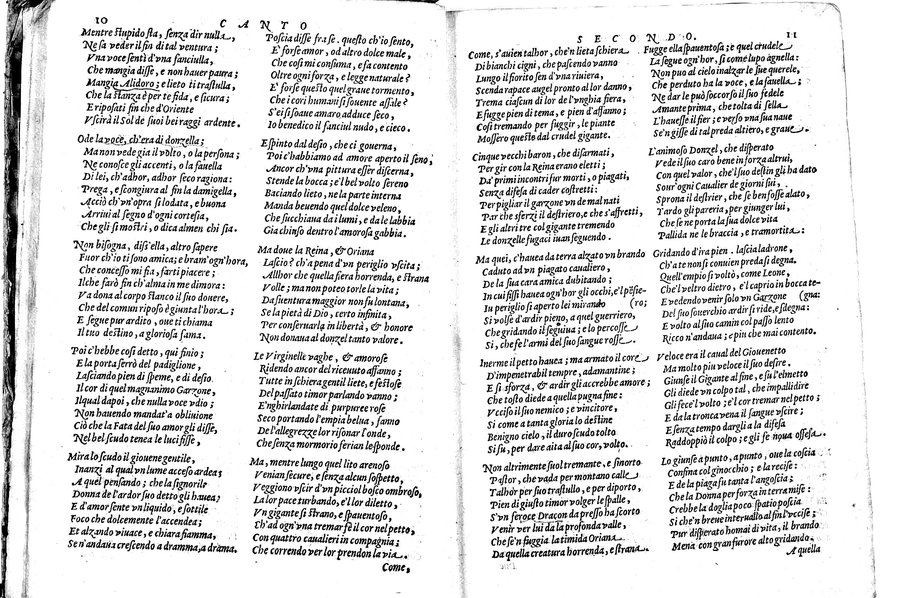 10
CANTO
Mentre stupido sta, senza dir nulla,
Ne sa veder il fin di tal ventura;
Vna voce sentì d'vna fanciulla,
Che mangia disse, e non hauer paura;
Mangia Alidoro; e lieto ti trastulla,
Che la stanza è per te fida, e sicura;
E riposati fin che d'Oriente
Vscirà il Sol de suoi bei raggi ardente.
Ode la voce, ch'era di donzella;
Ma non vede gia il volto, o la persona;
Ne conosce gli accenti, o la fauella
Di lei, ch'adhor, adhor seco ragiona:
Prega, e scongiura al fin la damigella,
Acciò ch'vn'opra sì lodata, e buona
Arriui al segno d'ogni cortesia,
Che gli si mostri, o dica almen chi sia.
Non bisogna, diss'ella, altro sapere
Fuor ch'io ti sono amica; e bram'ogn'hora,
Che concesso mi sia, farti piacere;
Ilche farò fin ch'alma in me dimora:
Va dona al corpo stanco il suo douere,
Che del comun riposo è giunta l'hora;
E segue pur ardito, oue ti chiama
Il tuo destino, a gloriosa fama.
Poi c'hebbe così detto, qui finio;
E la porta serrò del padiglione,
Lasciando pien di speme, e di desio
Il cor di quel magnanimo Garzone,
Ilqual dapoi, che nulla voce vdio;
Non hauendo mandat'a obliuione
Ciò che la Fata del suo amor gli disse,
Nel bel scudo tenea le luci fisse,
Mira lo scudo il giouene gentile,
Inanzi al qual vn lume acceso ardea;
A quel pensando; che la signoril
Donna de l'ardor suo detto gli hauea;
E d'amor sente vn liquido, e sottile
Foco che dolcemente l'accendea;
Et alzando viuace, e chiara fiamma,
Se n'andaua crescendo a dramma, a drama.
Poscia disse fra se. questo ch'io sento,
E' forse amor, od altro dolce male,
Che così mi consuma, e fa contento
Oltre ogni forza, e legge naturale?
E' forse questo quel graue tormento,
Che i cori humani sì souente assale?
S'ei si soaue amaro, adduce seco,
Io benedico il fanciul nudo, e cieco.
Espinto dal desio, che ci gouerna,
Poi c'habbiamo ad amore aperto il seno,
Ancor ch'vna pittura esser discerna,
Stende la bocca; e'l bel volto sereno
Baciando lieto, ne la parte interna
Manda beuendo quel dolce veleno,
Che succhiaua da i lumi, e da le labbia
Gia chinso dentro l'amorosa gabbia.
Ma doue la Reina, & Oriana
Lascio? ch'a pena d'vn periglio vscita;
Allhor che quella fiera horrenda, e strana
Volle; ma non poteo torle la vita;
Da suentura maggior non fu lontana,
Se la pietà di Dio, certo infinita,
Per conseruarla in libertà, & honore
Non donaua al donzel tanto valore.
Le Virginelle vaghe, & amorose
Ridendo ancor del riceuuto affanno;
Tutte in schiera gentil liete, e festose
Del passato timor parlando vanno;
E nghirlandate di purpuree rose
Seco portando l'empia belua, fanno
De l'allegrezze lor risonar l'onde,
Che senza mormorio ferian le sponde.
Ma, mentre lungo quel lito arenoso
Venian secure, e senza alcun sospetto,
Veggiono vscir d'vn picciol bosco ombroso,
La lor pace turbando, e'l lor diletto,
Vn gigante sì strano, e spauentoso,
Ch'ad ogn'vna tremar fè il cor nel petto,
Con quattro caualieri in compagnia;
Che correndo ver lor prendon la via.
Come,
SECONDO.
11
Come, s'auien talhor, che'n lieta schiera
Di bianchi cigni, che pascendo vanno
Lungo il fiorito sen d'vna riuiera,
Scenda rapace augel pronto al lor danno,
Trema ciascun di lor de l'vnghia fiera,
E fugge pien di tema, e pien d'affanno;
Così tremando per fuggir, le piante
Mossero questo dal crudel gigante.
Cinque vecchi baron, che disarmati,
Per gir con la Reina erano eletti;
Da' primi incontri fur morti, o piagati,
Senza difesa di cader costretti:
Per pigliar il garzone vn de mal nati
Par che sferzi il destriero, e che s'affretti,
E gli altri tre col gigante tremendo
Le donzelle fugaci iuan seguendo.
Ma quei, c'hauea da terra alzato vn brando
Caduto ad vn piagato caualiero,
De la sua cara amica dubitando;
In cui fissi hauea ogn'hor gli occhi, e'l pensie-
In periglio sì aperto lei mirando (ro;
Si volse d'ardir pieno, a quel guerriero,
Che gridando il seguiua; e lo percosse
Sì, che fe l'armi del suo sangue rosse.
Inerme il petto hauea; ma armato il core
D'impenetrabil tempre, adamantine;
E sì sforza, & ardir gli accrebbe amore;
Che tosto diede a quella pugna fine:
Vccise il suo nemico; e vincitore,
Sì come a tanta gloria lo destine
Benigno cielo, il duro scudo tolto
Si fu, per dare aita al suo cor, volto.
Non altrimente suol tremante, e smorto
Pastor, che vada per montano calle
Talhor per suo trastullo, e per diporto,
Pien di giusto timor volger le spalle,
S'vn feroce Dracon da presso ha scorto
Venir ver lui da la profonda valle,
Che se'n fuggia la timida Oriana
Da quella creatura horrenda, e strana.
Fugge ella spauentosa; e quel crudele
La segue ogn'hor, sì come lupo agnella:
Non puo al cielo inalzar le sue querele,
Che perduto ha la voce, e la fauella;
Ne dar le può soccorso il suo fedele
Amante prima, che tolta di sella
L'hauesse il fier; e verso vna sua naue
Se'n gisse di tal preda altiero, e graue.
L'animoso Donzel, che disperato
Vede il suo caro bene in forza altrui,
Con quel valor, che'l suo destin gli ha dato
Sour'ogni Caualier de giorni sui,
Sprona il destrier, che se ben fosse alato,
Tardo gli pareria, per giunger lui,
Che se ne porta la sua dolce vita
Pallida ne le braccia, e tramortita:
Gridando d'ira pien. lascia ladrone,
Ch'a te non si conuien preda sì degna.
Quell'empio si voltò, come Leone,
Che'l veltro dietro, e'l caprio in bocca te-
E vedendo venir solo vn Garzone (gna:
Del suo souerchio ardir si ride, e sdegna:
E volto al suo camin col passo lento
Ricco n'andaua; e piu che mai contento.
Veloce era il caual del Giouenetto
Ma molto piu veloce il suo desire.
Giunse il Gigante al fine, e su l'elmetto
Gli diede vn colpo tal, che impallidire
Gli fece'l volto; e'l cor tremar nel petto;
E da la tronca vena il sangue vscire;
E senza tempo dargli a la difesa
Raddoppiò il colpo; e gli fe noua offesa.
Lo giunse a punto, a punto, oue la coscia
Confina col ginocchio; e la recise:
E de la piaga fu tanta l'angoscia;
Che la Donna per forza in terra mise:
Crebbe la doglia poco spatio poscia
Sì che'n breue interuallo al fin l'vccise;
Pur disperato homai di vita, il brando
Menà con gran furore alto gridando.
A quella